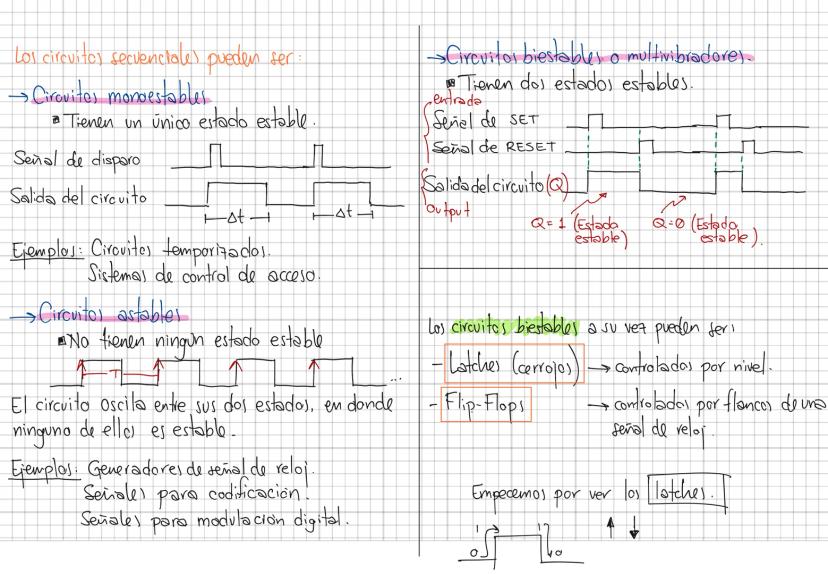 Los circuitos secuenciales pueden ser:
→ Circuitos monoestables
Tienen un único estado estable.
Señal de disparo
Salida del circuito
Δt
Δt
Ejemplos: Circuitos temporizados.
Sistemas de control de acceso.
→ Circuitos astables
No tienen ningún estado estable
T
...
El circuito oscila entre sus dos estados, en donde
ninguno de ellos es estable.
Ejemplos: Generadores de señal de reloj.
Señales para codificación.
Señales para modulación digital.
→ Circuitos biestables o multivibradores.
Tienen dos estados estables.
entrada
Señal de SET
Señal de RESET
Salida del circuito (Q)
Output
Q = 1 (Estado
estable)
Q = 0 (Estado
estable).
Los circuitos biestables a su vez pueden ser:
- Latches (cerrojos) → controlados por nivel.
- Flip-Flops → controlados por flancos de una
señal de reloj.
Empecemos por ver los latches.
1 1
0 0